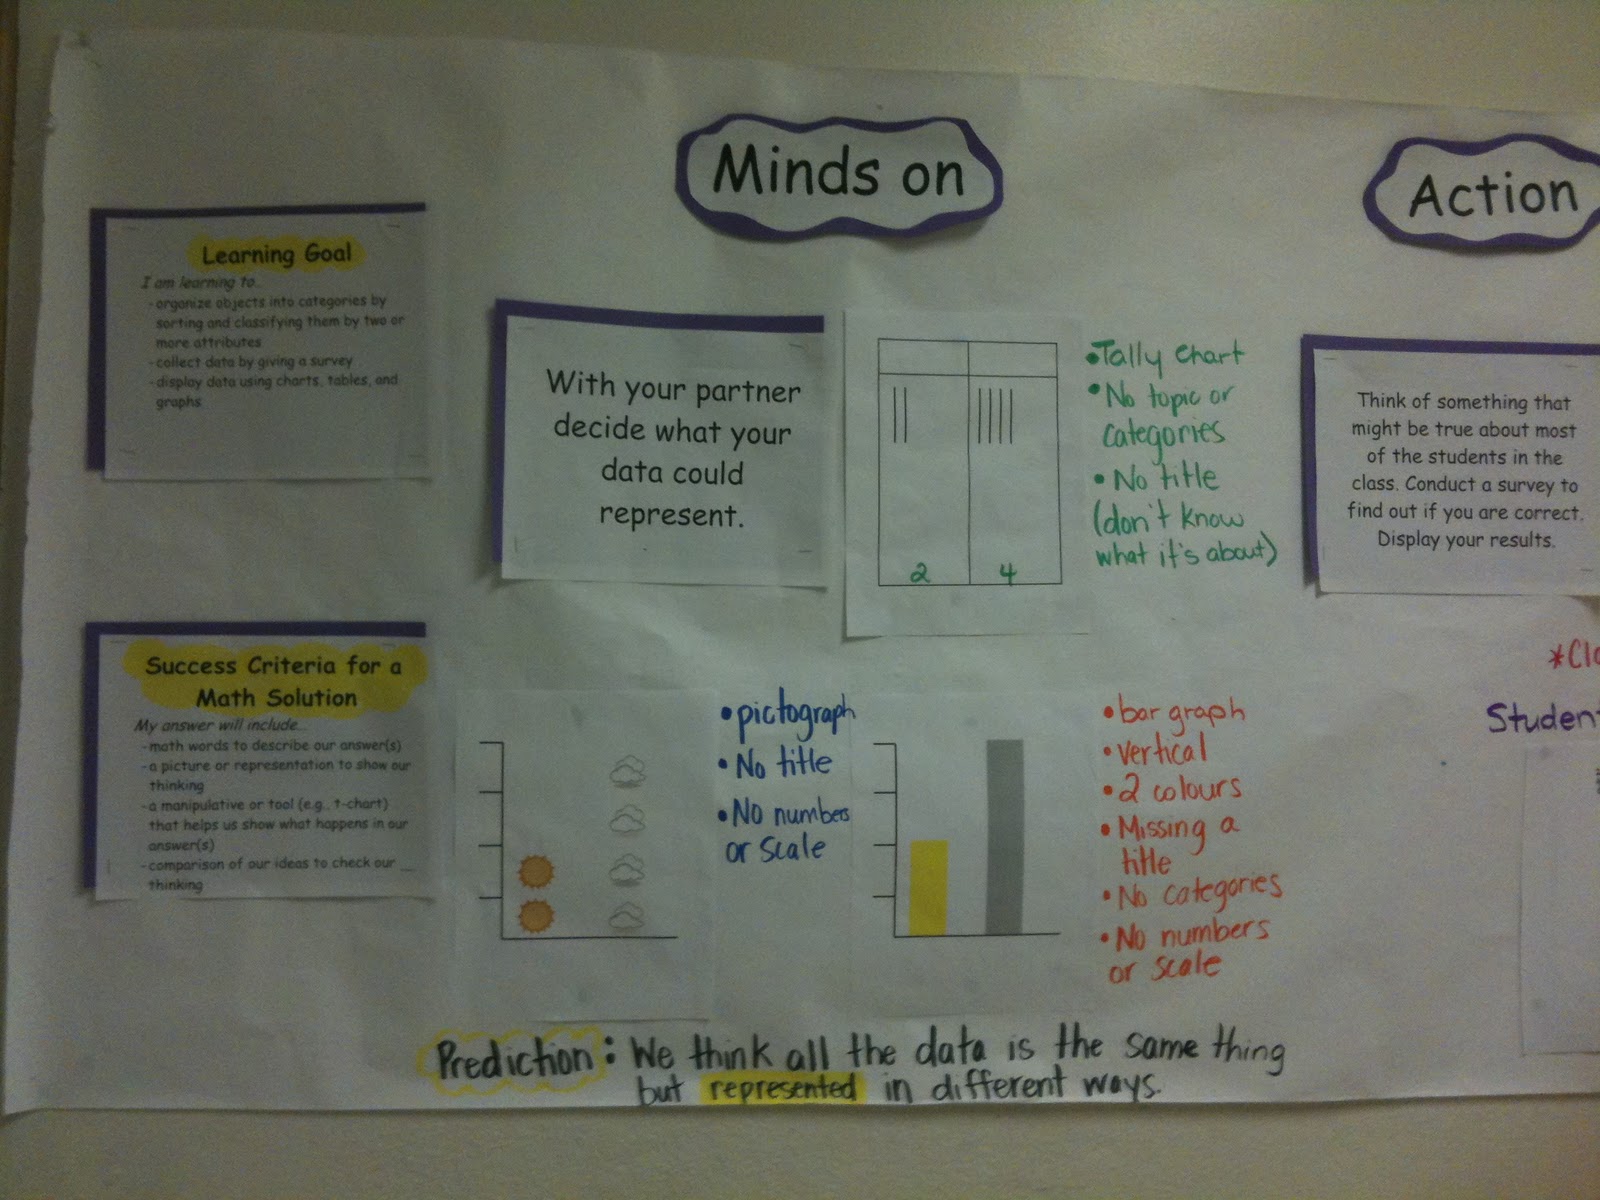 Minds on
Action
Learning Goal
I am learning to...
-organize objects into categories by
sorting and classifying them by two or
more attributes
-collect data by giving a survey
-display data using charts, tables, and
graphs
Success Criteria for a
Math Solution
My answer will include...
-math words to describe our answer(s)
-a picture or representation to show our
thinking
-a manipulative or tool (e.g., t-chart)
that helps us show what happens in our
answer(s)
-comparison of our ideas to check our
thinking
With your partner
decide what your
data could
represent.
2 4
•Tally chart
•No topic or
categories
•No title
(don't know
what it's about)
•pictograph
•No title
•No numbers
or scale
•bar graph
•vertical
•2 colours
•Missing a
title
•No categories
•No numbers
or scale
Prediction: We think all the data is the same thing
but represented in different ways.
Think of something that
might be true about most
of the students in the
class. Conduct a survey to
find out if you are correct.
Display your results.
*Cla
Studen